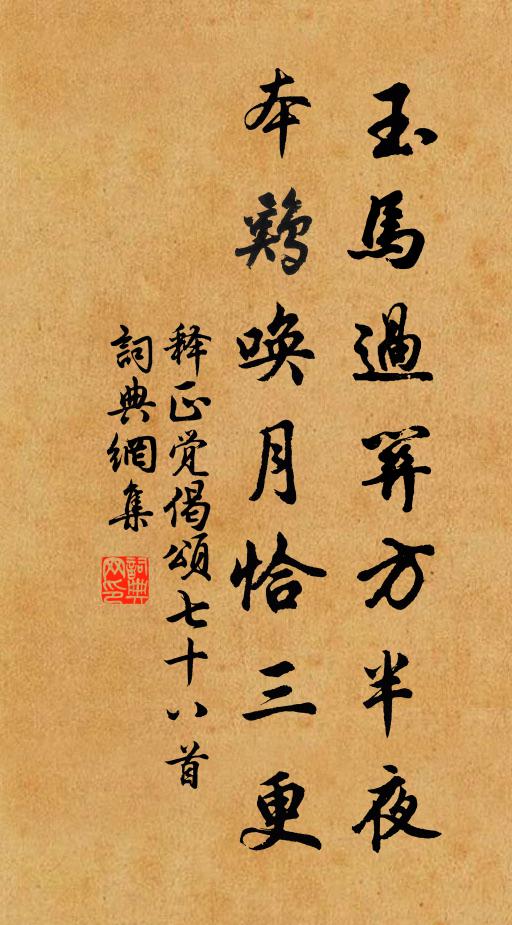 玉馬過關方半夜
木鷄唤月恰三更
释正觉偈頌七十八首
詞典網集
詞典网印